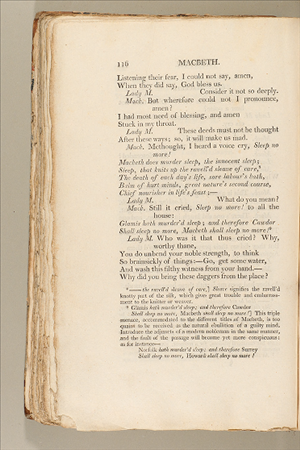 116 MACBETH.
Listening their fear, I could not say, amen,
When they did say, God bless us.
Lady M. Consider it not so deeply.
Mach. But wherefore could not I pronounce,
amen?
I had most need of blessing, and amen
Stuck in my throat.
Lady M. These deeds must not be thought
After these ways; so, it will make us mad.
Mach. Methought, I heard a voice cry, Sleep no
more!
Macbeth does murder sleep, the innocent sleep;
Sleep, that knits up the ravell'd sleave of care,*
The death of each day's life, sore labour's bath,
Balm of hurt minds, great nature's second course,
Chief nourisher in life's feast;—
Lady M. What do you mean?
Mach. Still it cried, Sleep no more! to all the
house:
Glamis hath murder'd sleep; and therefore Cawdor
Shall sleep no more, Macbeth shall sleep no more!*
Lady M. Who was it that thus cried? Why,
worthy thane,
You do unbend your noble strength, to think
So brainsickly of things:—Go, get some water,
And wash this filthy witness from your hand.—
Why did you bring these daggers from the place?
* —— the ravell'd sleave of care,] Sleave signifies the ravell'd
knotty part of the silk, which gives great trouble and embarrass-
ment to the knitter or weaver.
* Glamis hath murder'd sleep; and therefore Cawdor
Shall sleep no more, Macbeth shall sleep no more!] This triple
menace, accommodated to the different titles of Macbeth, is too
quaint to be received as the natural ebullition of a guilty mind.
Introduce the adjuncts of a modern nobleman in the same manner,
and the fault of the passage will become yet more conspicuous:
as for instance—
Norfolk hath murder'd sleep; and therefore Surrey
Shall sleep no more, Howard shall sleep no more!